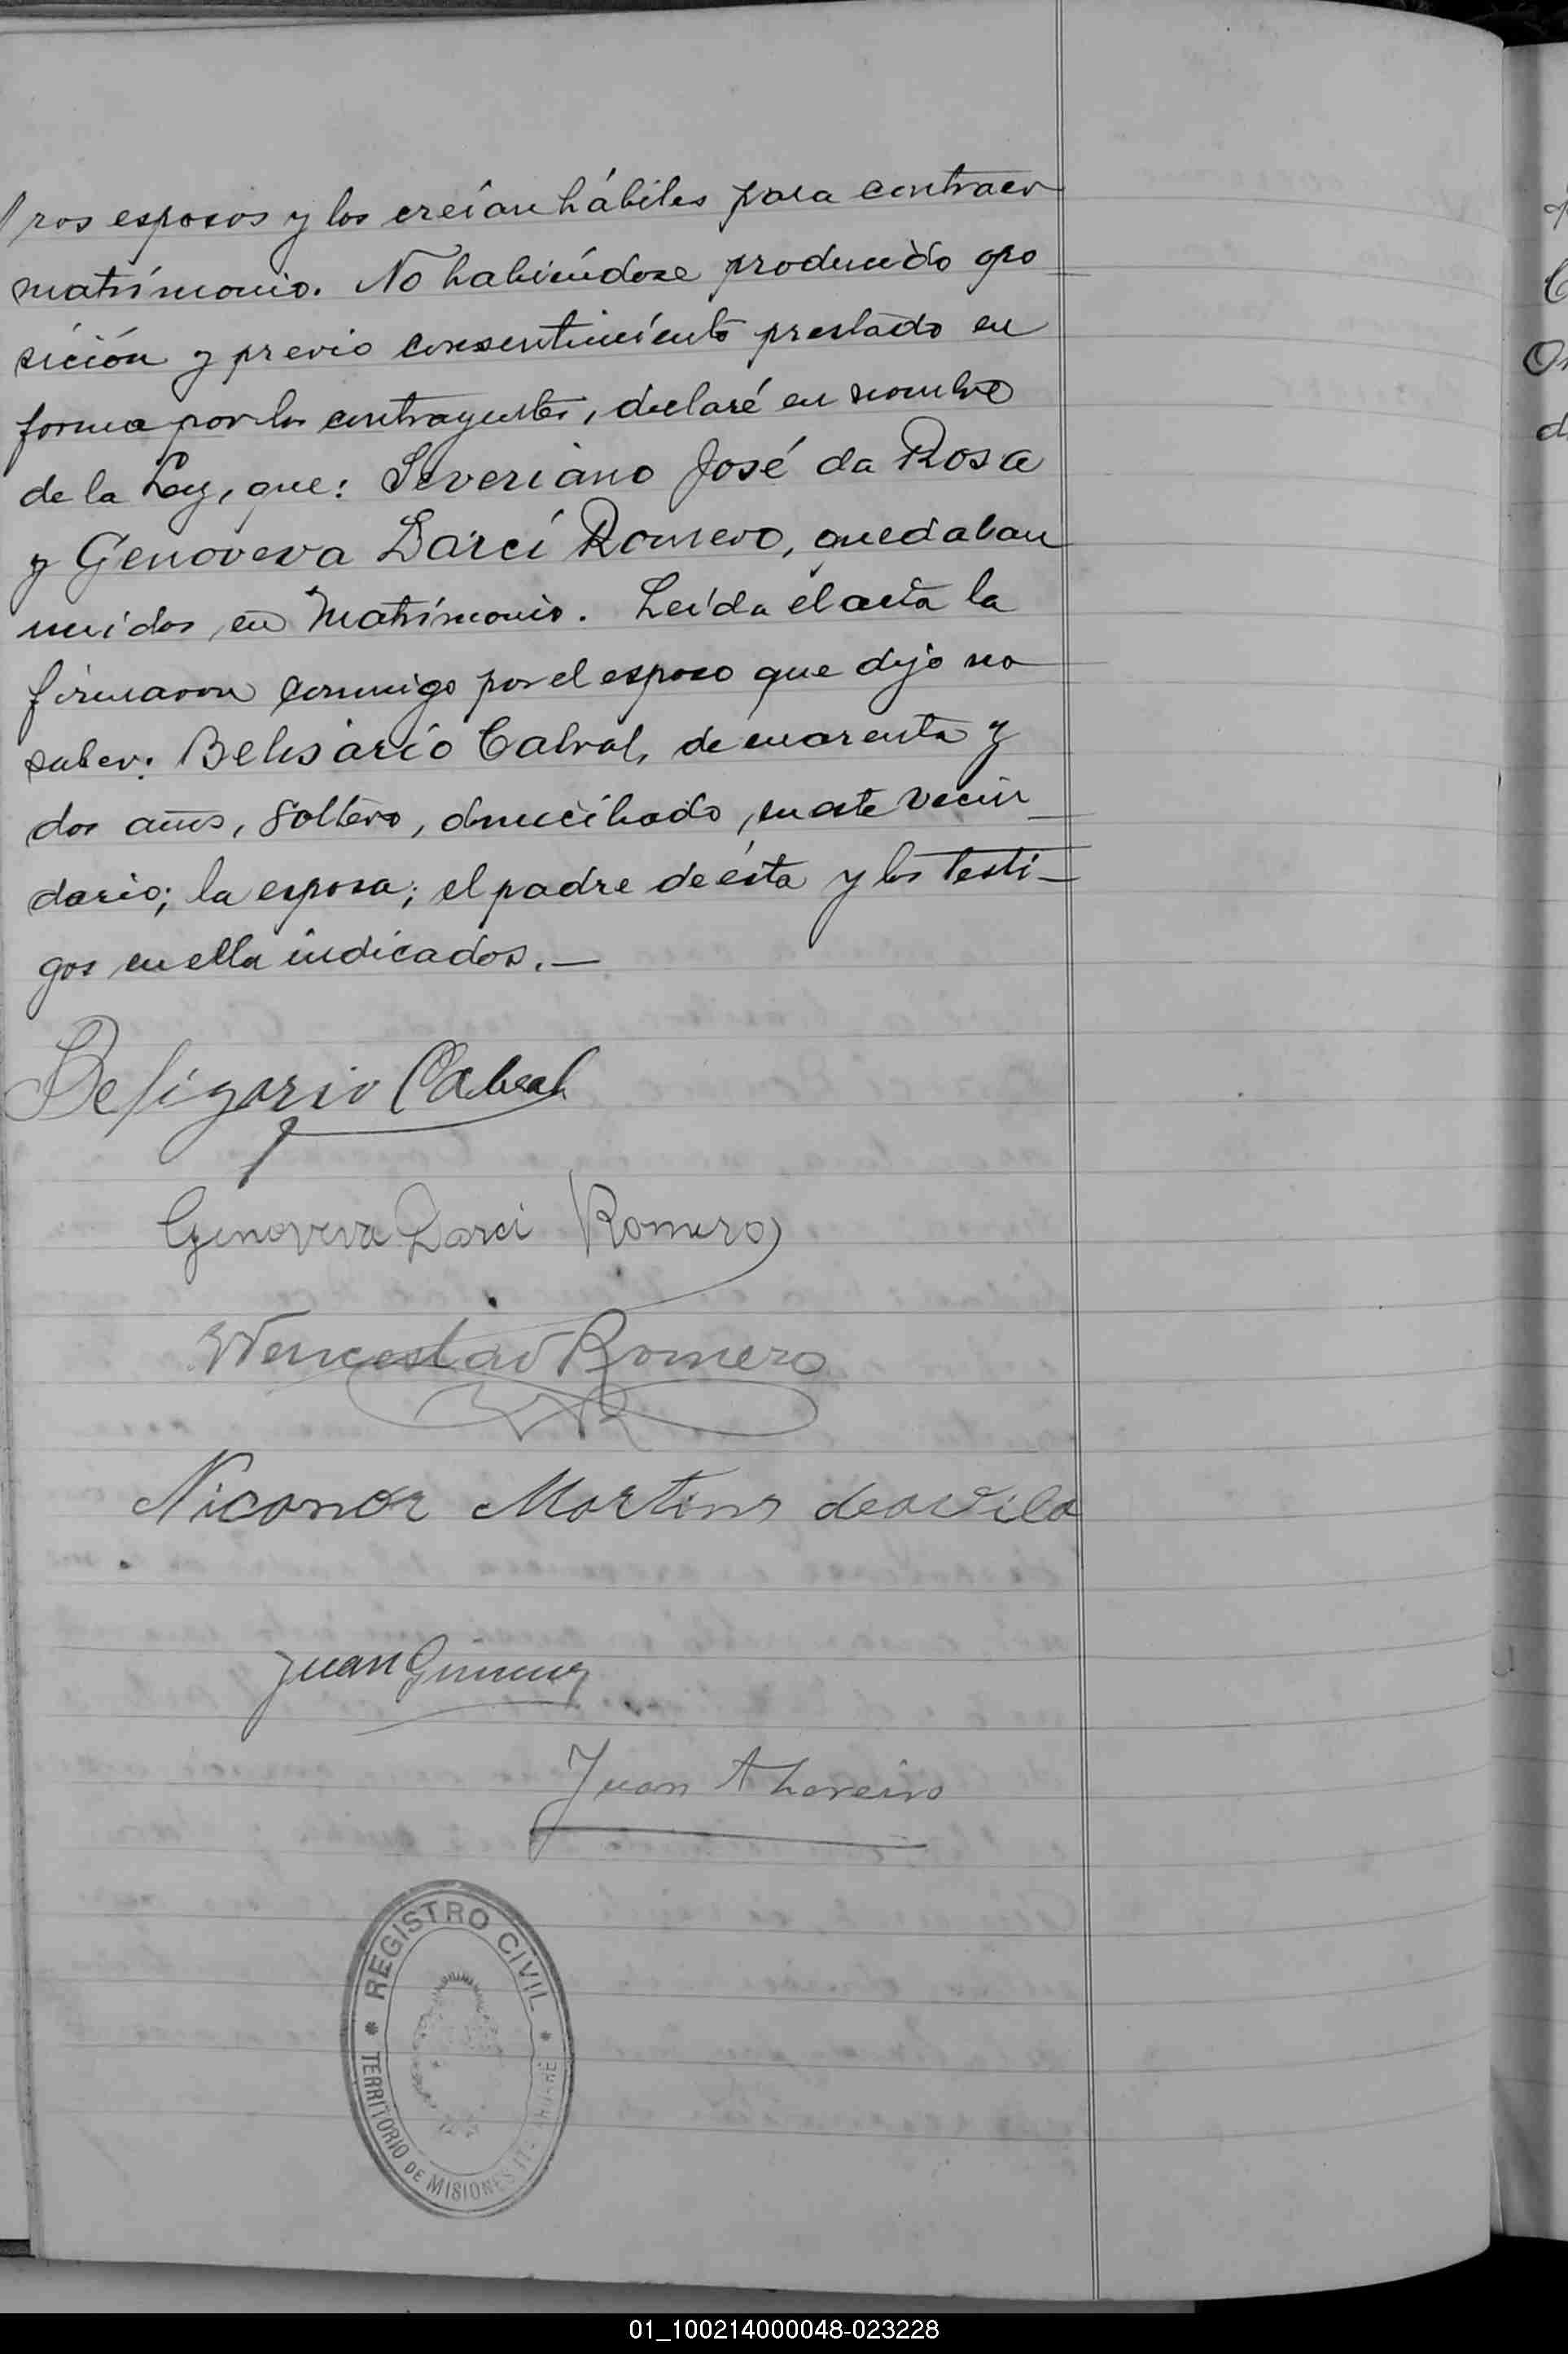 ros esposos y los creían hábiles para contraer
matrimonio. No habiéndose producido opo
sición y previo consentimiento prestado en
forma por los contrayentes, declaré en nombre
de la Ley, que: Severiano José da Rosa
y Genoveva Darcí Romero, quedaban
unidos en Matrimonio. Leída el acta la
firmaron conmigo por el esposo que dijo no
saber: Belisario Cabral, de cuarenta y
dos años, soltero, domiciliado, en este vecin
dario; la esposa; el padre de ésta y los testi-
gos en ella indicados.—
Belizario Cabral
Genoveva Darci Romero
Wenceslao Romero
Niconor Martins deavila
Juan Gimenez
Juan A
REGISTRO CIVIL
TERRITORIO DE MISIONES
01_100214000048-023228